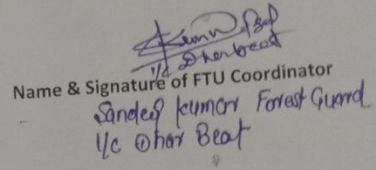 I/c Dhar beat
Name & Signature of FTU Coordinator
Sandeep Kumar Forest Guard
I/c Dhar Beat